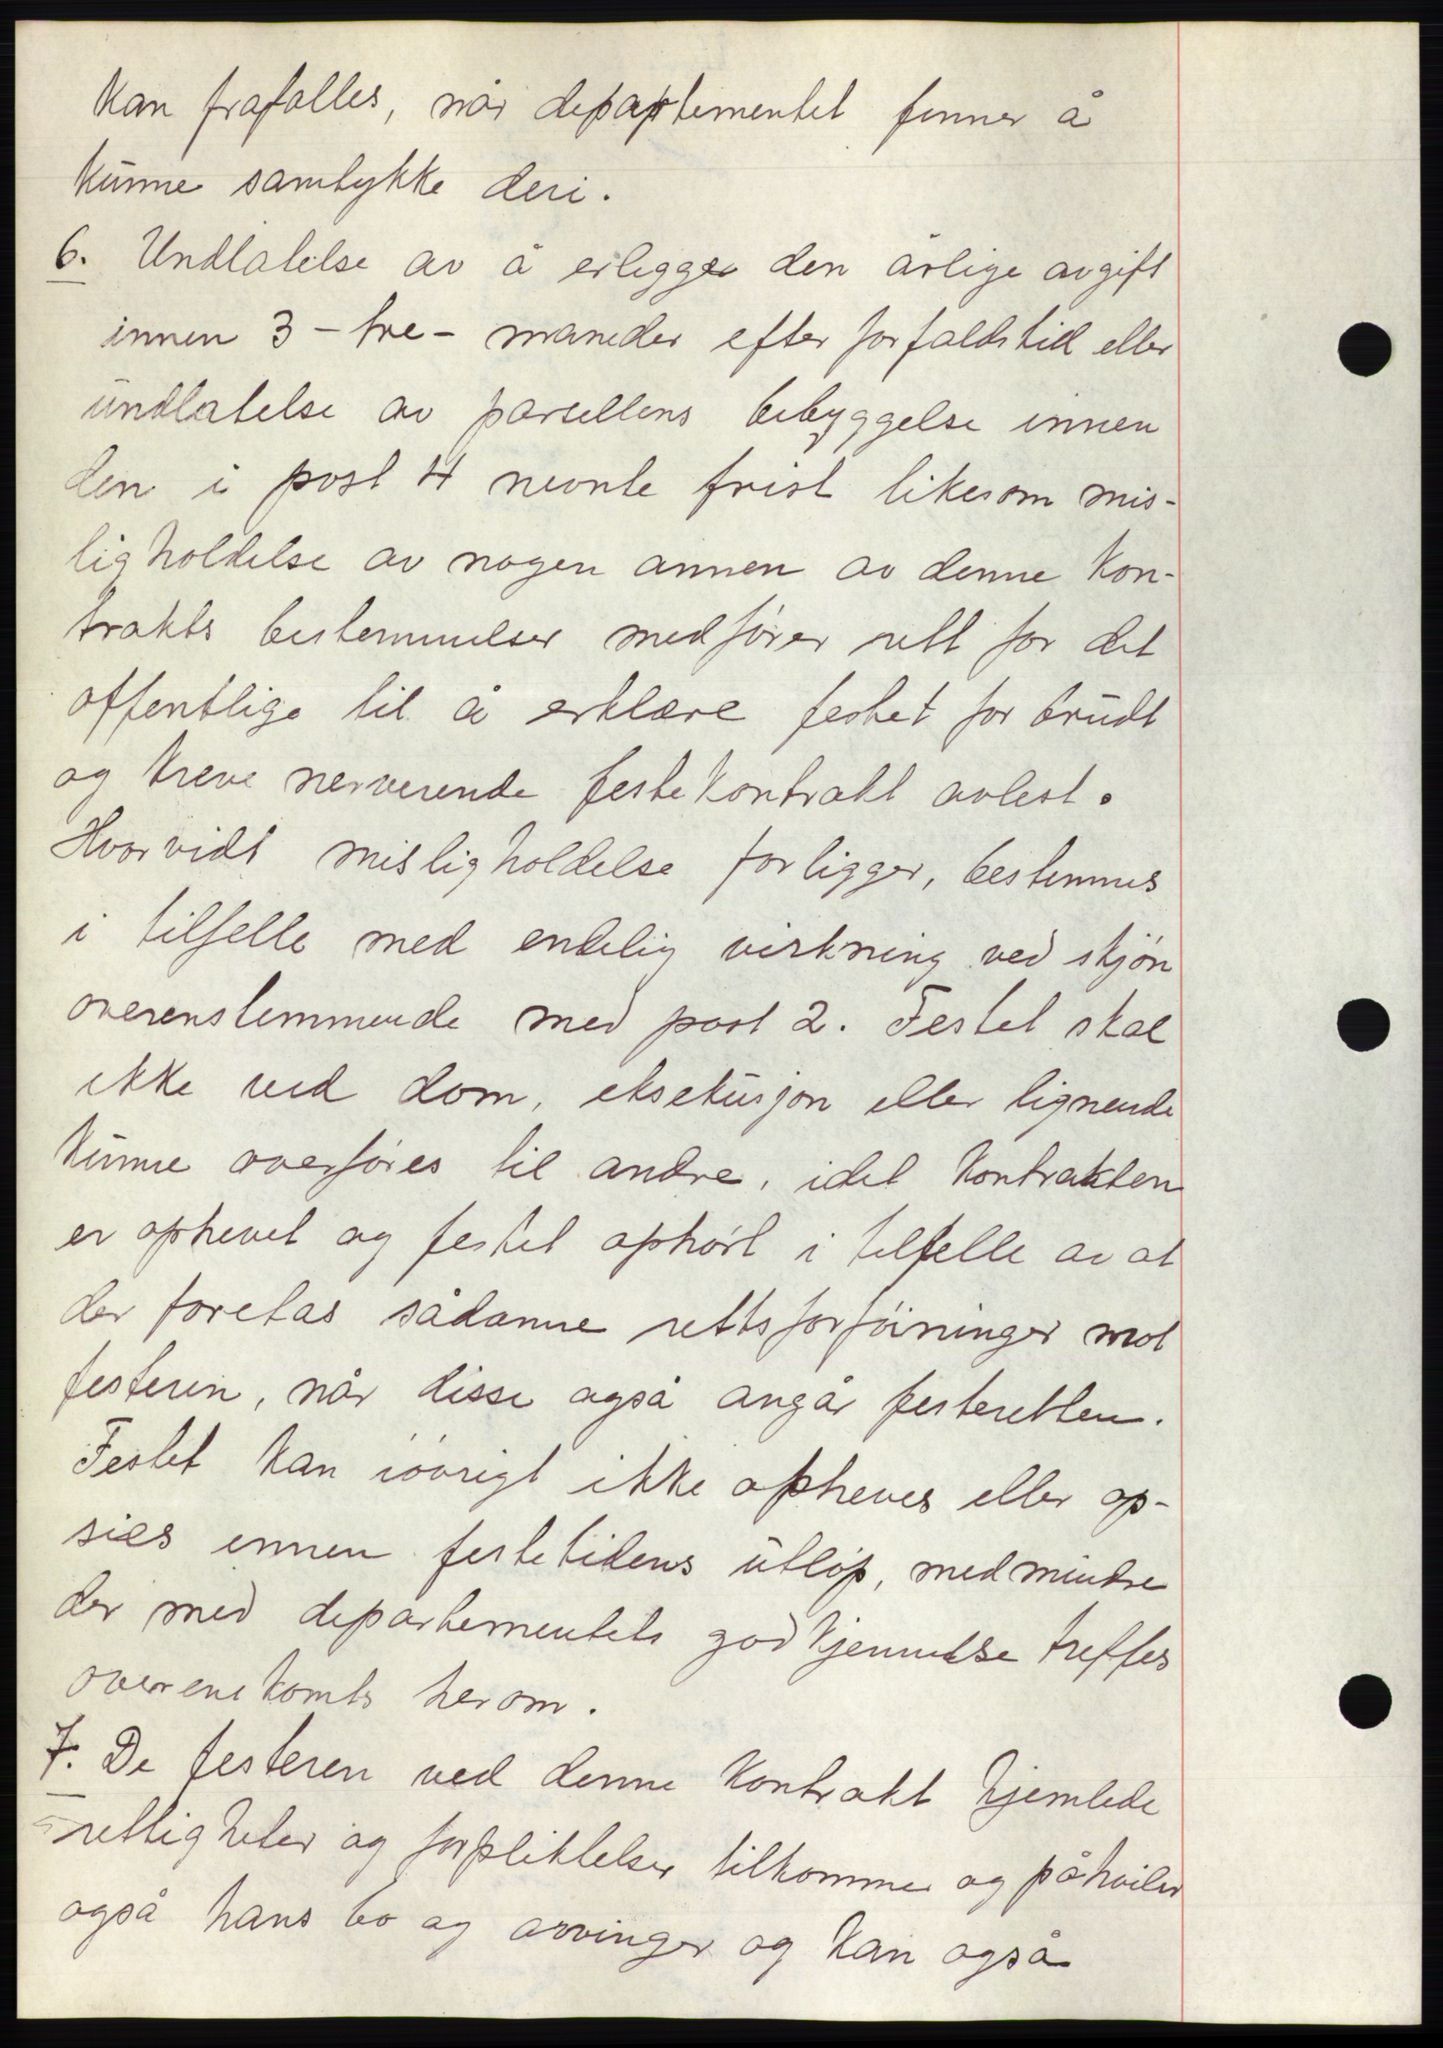 kan frafalles, når departementet finner å
kunne samtykke deri.
6. Undlatelse av å erlegge den årlige avgift
innen 3 - tre - maneder efter forfaldstid eller
undlatelse av parsellens bebyggelse innen
den i post 4 nevnte frist likesom mis-
ligholdelse av nogen annen av denne kon-
trakts bestemmelser medfører rett for det
offentlige til å erklære festet for brudt
og kreve nerverende festekontrakt avlest.
Hvorvidt misligholdelse forligger, bestemmes
i tilfelle med endelig virkning ved skjøn
overenstemmende med post 2. Festet skal
ikke ved dom, eksekusjon eller lignende
kunne overføres til andre, idet kontrakten
er ophevet og festet ophørt i tilfelle av at
der foretas sådanne rettsforføininger mot
festeren, når disse også angår festeretten.
Festet kan iøvrigt ikke opheves eller op-
sies innen festetidens utløp, medmindre
der med departementets godkjennelse treffes
overenskomts herom.
7. De festeren ved denne kontrakt hjemlede
rettigheter og forpliktelser tilkommer og påhviler
også hans bo og arvinger og kan også